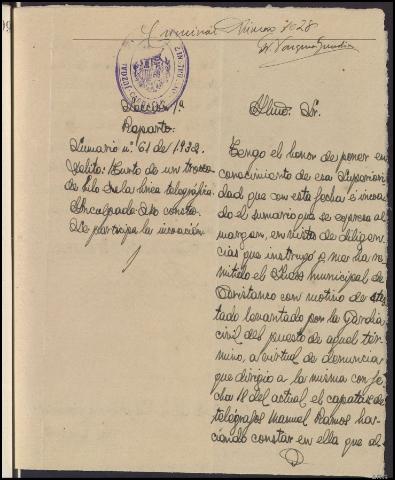 Criminal Número 7028
Sección 1ª
Reparto.
Sumario nº 61 de 1932.
Delito: Hurto de un trozo
de hilo de la linea telegráfica.
Inculpado: No consta.
Se participa la incoación
Iltmo. Sr.
Tengo el honor de poner en
conocimiento de esa Superiori-
dad que con esta fecha é incoa-
do el sumario que se expresa al
margen, en vista de diligen-
cias que instruyó y me ha re-
mitido el Juez municipal de
Coristanco con motivo de ates-
tado levantado por la Gardia
civil del puesto de aquel tér-
mino, a virtud de denuncia
que dirigio a la misma con fe-
cha 18 del actual el capataz de
telégrafos Manuel Ramos ha-
ciendo constar en ella que al